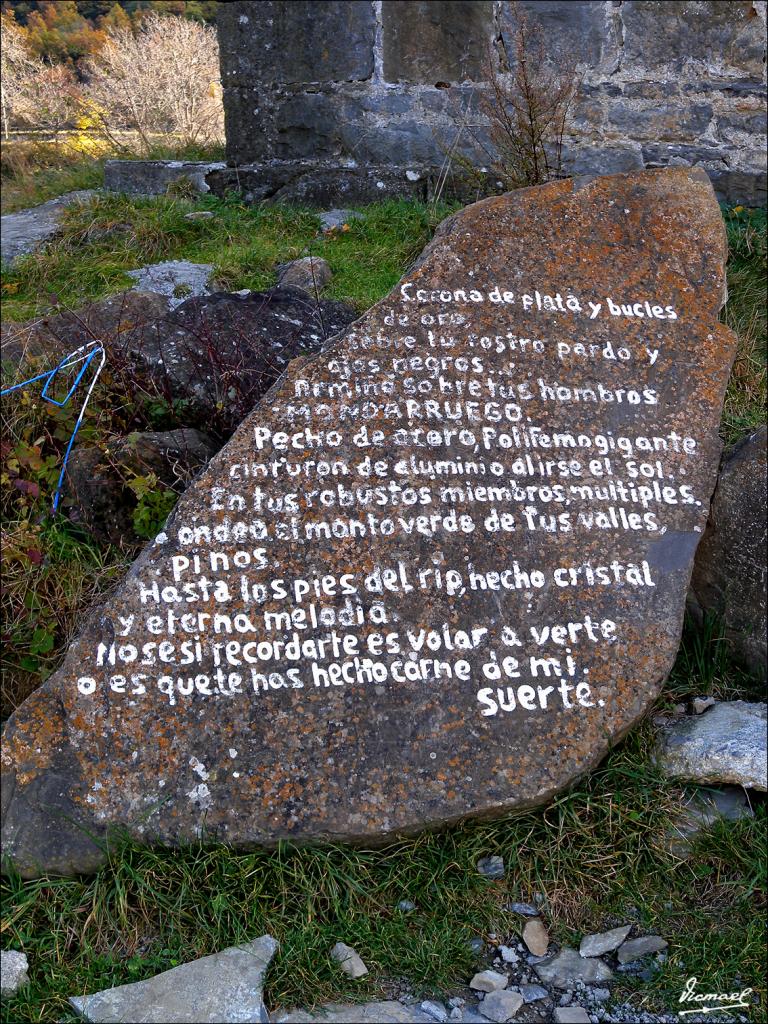 Corona de plata y bucles
de oro,
sobre tu rostro pardo y
ojos negros...
Armino sobre tus hombros
MONDARRUEGO.
Pecho de acero, Polifemo gigante
cinturon de aluminio al irse el sol.
En tus robustos miembros, multiples.
ondea el manto verde de Tus valles,
pinos.
Hasta los pies del rio, hecho cristal
y eterna melodia.
No se si recordarte es volar a verte
o es que te has hecho carne de mi.
suerte.
Vicmael